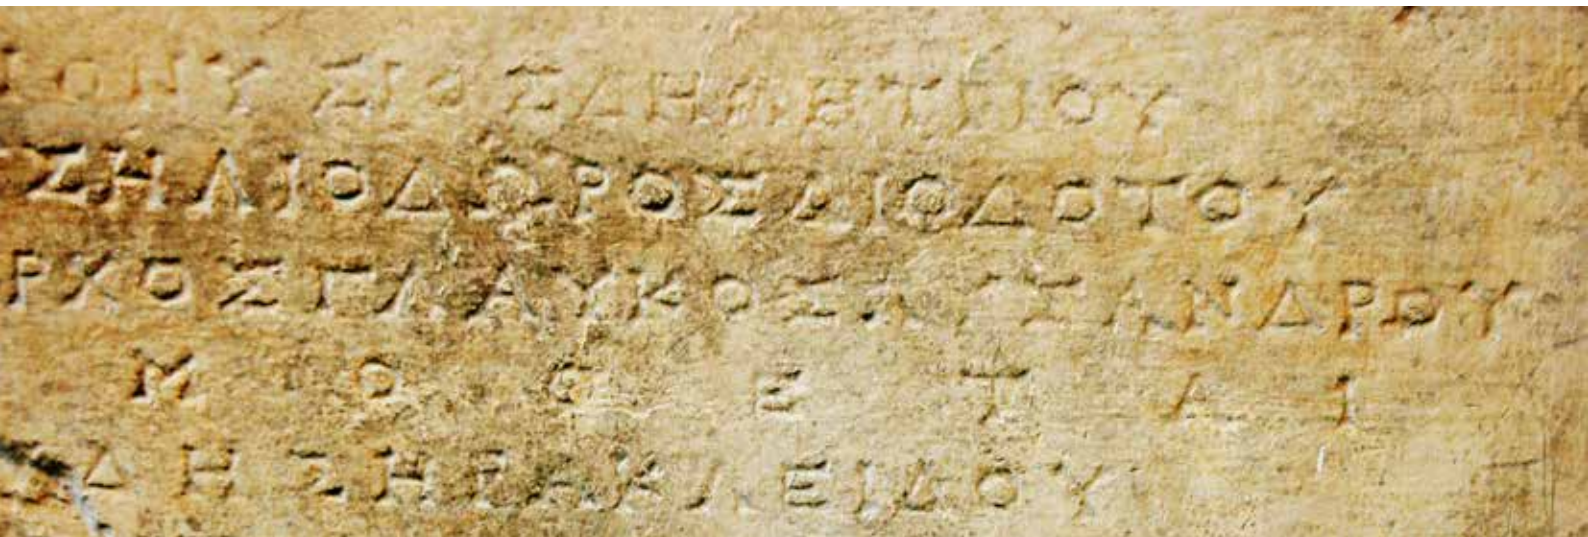 ΙΟΝΥΣΙΟΣΔΗΜΗΤΡΙΟΥ
ΣΗΛΙΟΔΩΡΟΣΔΙΟΔΟΤΟΥ
ΡΧΟΣΓΛΑΥΚΟΣΛΥΣΑΝΔΡΟΥ
ΜΟΘΕΤΑΙ
ΔΗΣΗΡΑΚΛΕΙΔΟΥ